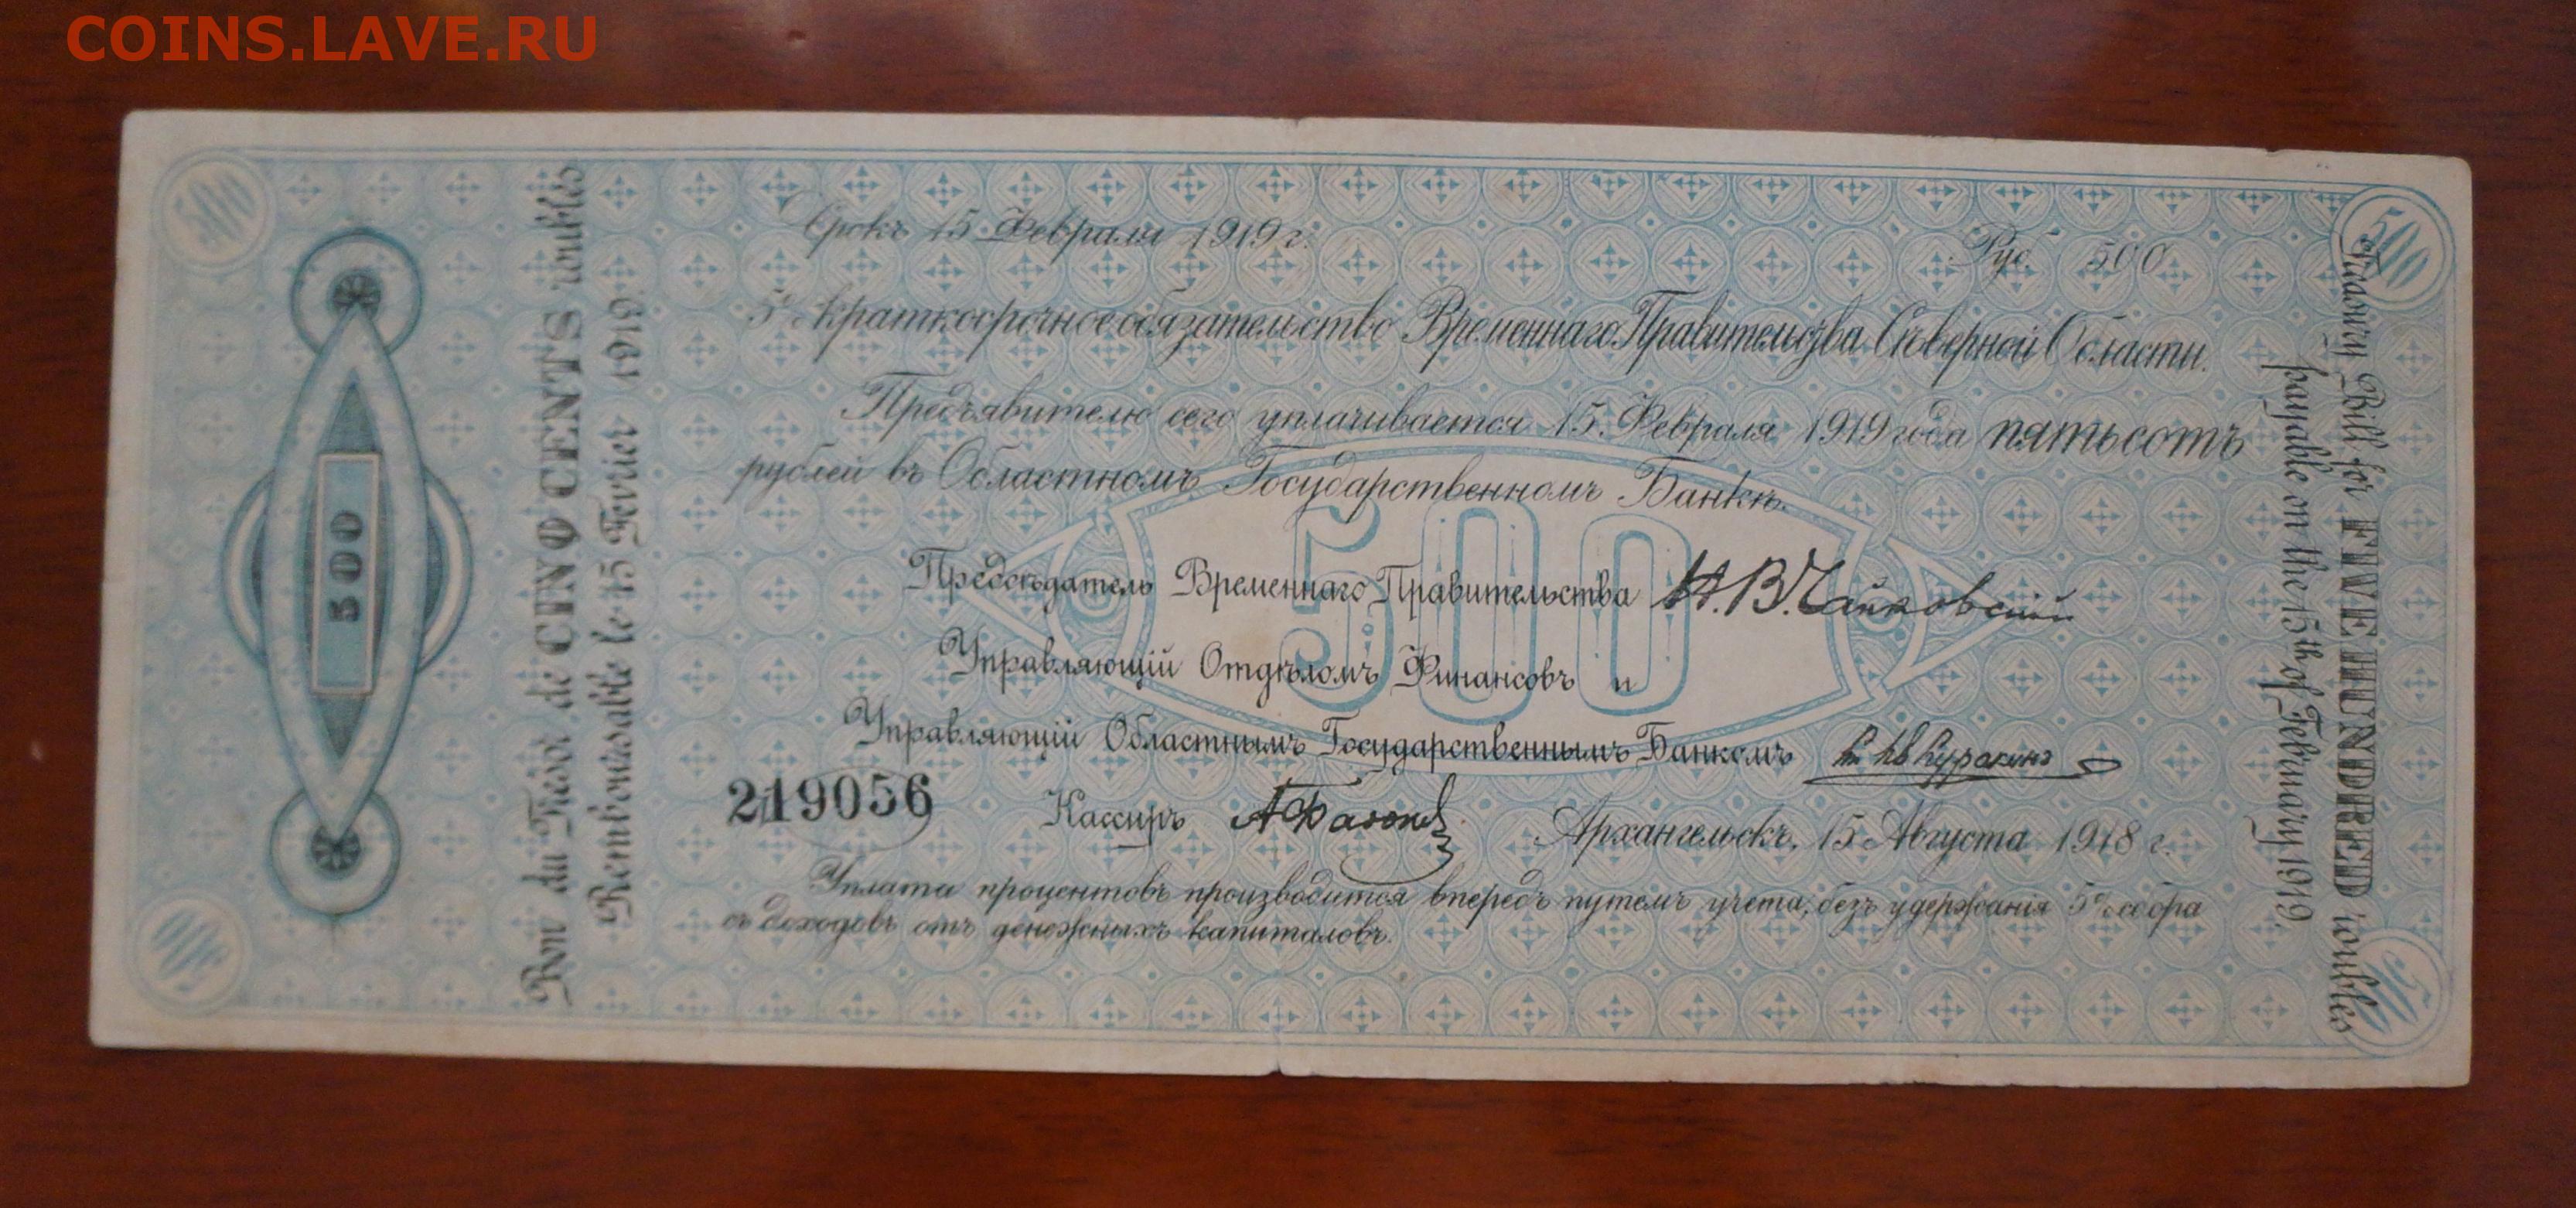 COINS.LAVE.RU
500
500
Срокъ 15 Февраля 1919 г.
Руб. 500
5% краткосрочное обязательство Временнаго Правительства Сѣверной Области.
Предъявителю сего уплачивается 15 Февраля 1919 года пятьсотъ
рублей въ Областномъ Государственномъ Банкѣ.
500
Предсѣдатель Временнаго Правительства Н.В.Чайковскій
Управляющій Отдѣломъ Финансовъ и
Управляющій Областнымъ Государственнымъ Банкомъ
219056
Кассиръ
Архангельскъ, 15 Августа 1918 г.
Уплата процентовъ производится впередъ путемъ учета, безъ удержанія 5% сбора
съ доходовъ отъ денежныхъ капиталовъ.
Bon du Trésor de CINQ CENTS roubles
Remboursable le 15 Fevrier 1919.
500
Treasury Bill for FIVE HUNDRED roubles
payable on the 15th of February 1919.
500
500